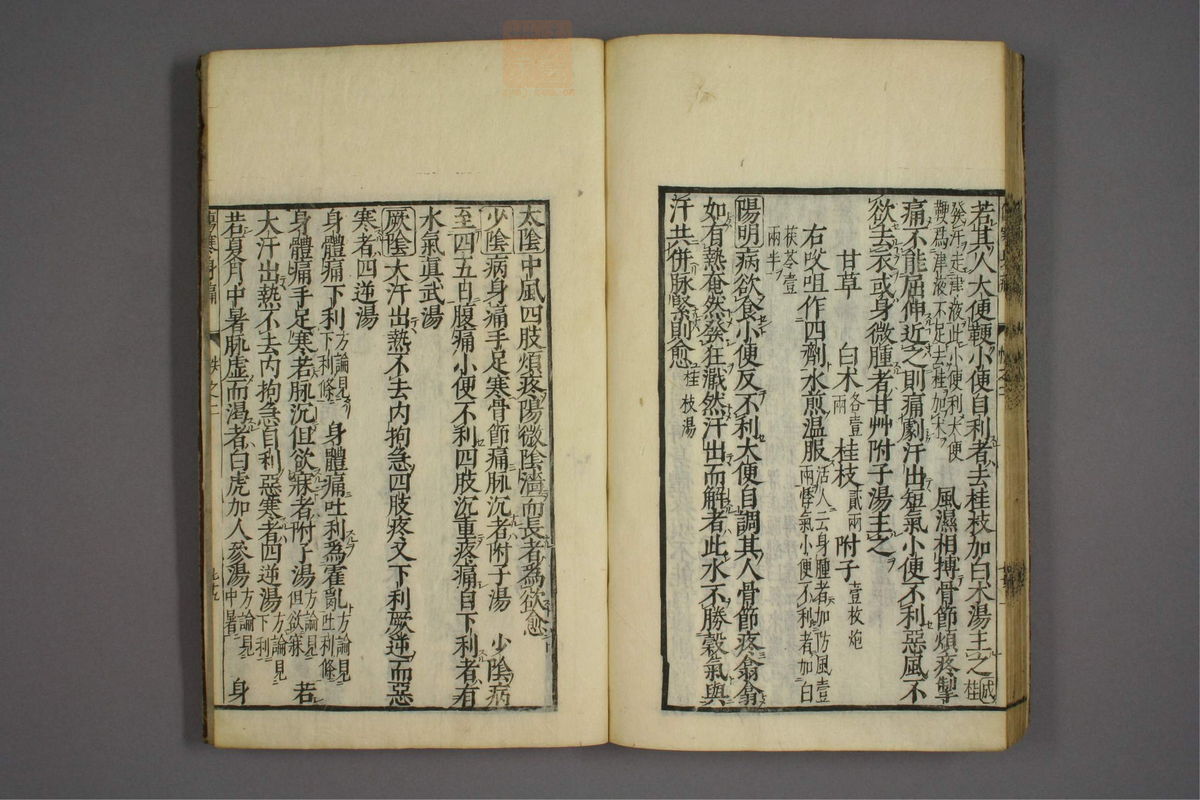 若其人大便鞕小便自利者去桂枝加白术湯主之 成 桂
發汗走津液此小便利大便
鞕為津液不足去桂加术 風濕相搏骨節煩疼掣
痛不能屈伸近之則痛劇汗出短氣小便不利惡風不
欲去衣或身微腫者甘艸附子湯主之
甘草 白术各壹兩 桂枝貳兩 附子壹枚炮
右㕮咀作四劑水煎温服活人云身腫者加防風壹
兩悸氣小便不利者加白
茯苓壹
兩半
陽明病欲食小便反不利大便自調其人骨節疼翕翕
如有熱奄然發狂濈然汗出而解者此水不勝穀氣與
汗共併脉緊則愈桂枝湯
太陰中風四肢煩疼陽微陰濇而長者為欲愈
少陰病身痛手足寒骨節痛脉沉者附子湯 少陰病
至四五日腹痛小便不利四肢沉重疼痛自下利者有
水氣真武湯
厥陰大汗出熱不去内拘急四肢疼又下利厥逆而惡
寒者四逆湯
身體痛下利方論見下利條 身體痛吐利為霍亂方論見吐利條
身體痛手足寒若脉沉但欲寐者附子湯方論見但欲寐 若
大汗出熱不去内拘急自利惡寒者四逆湯方論見下利
若夏月中暑脉虛而渴者白虎加人參湯方論見中暑 身